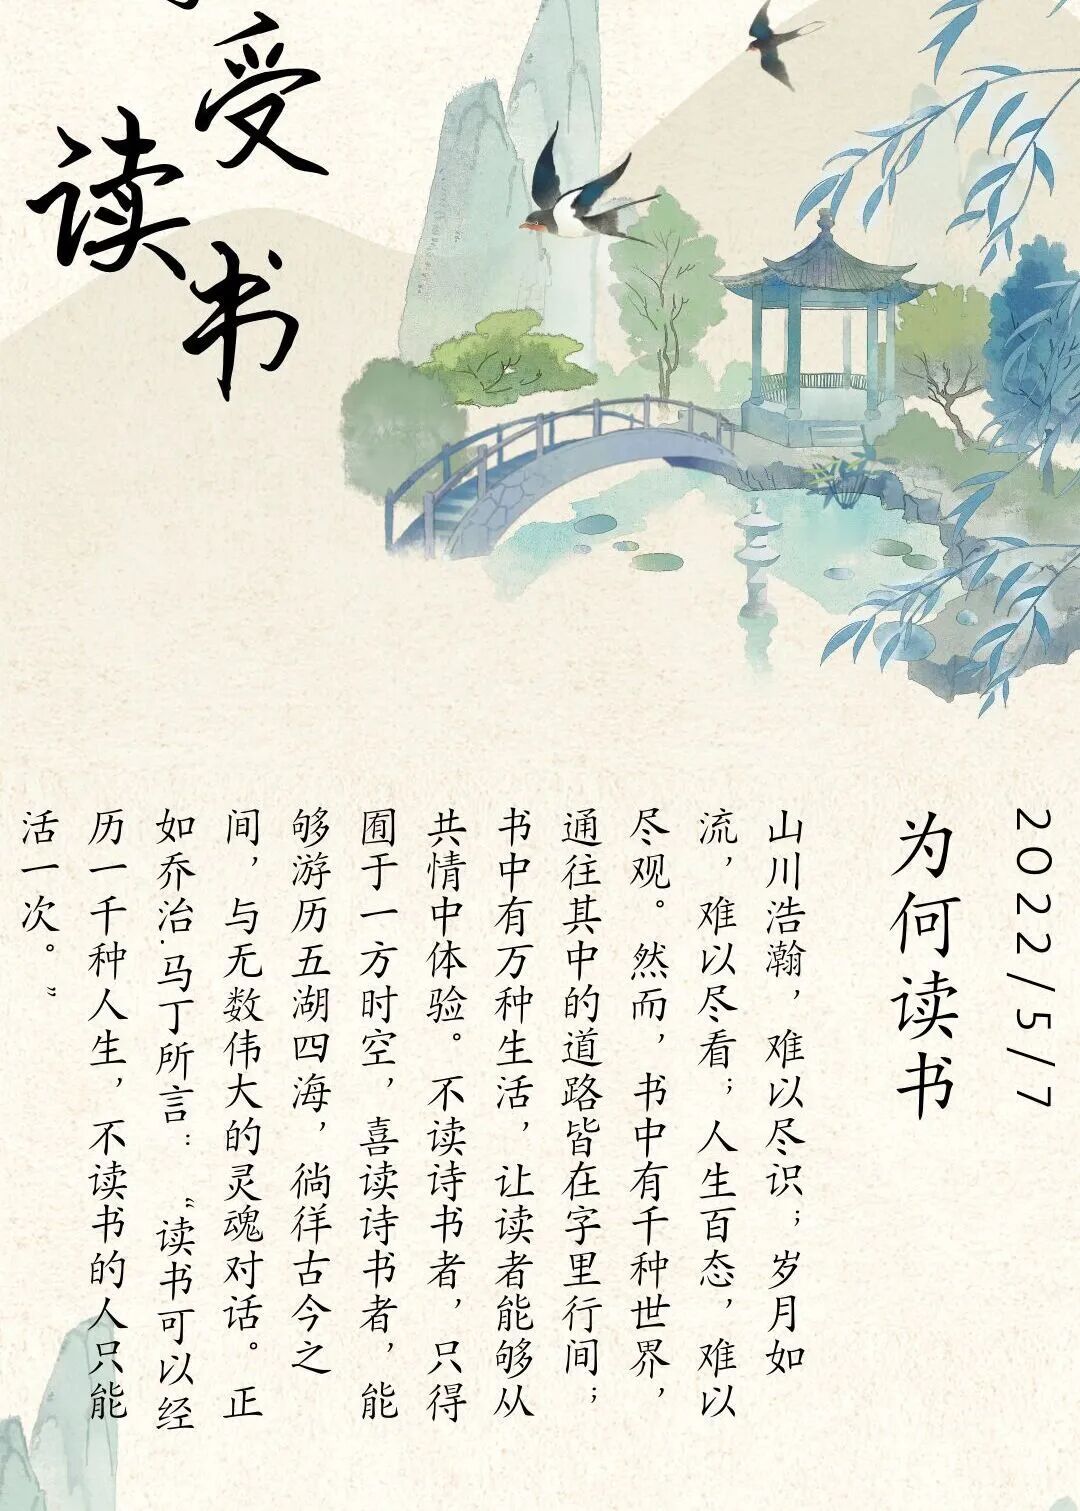 受
读
书
2022/5/7
为何读书
山川浩瀚，难以尽识；岁月如
流，难以尽看；人生百态，难以
尽观。然而，书中有千种世界，
通往其中的道路皆在字里行间；
书中有万种生活，让读者能够从
共情中体验。不读诗书者，只得
囿于一方时空，喜读诗书者，能
够游历五湖四海，徜徉古今之
间，与无数伟大的灵魂对话。正
如乔治.马丁所言：“读书可以经
历一千种人生，不读书的人只能
活一次。”